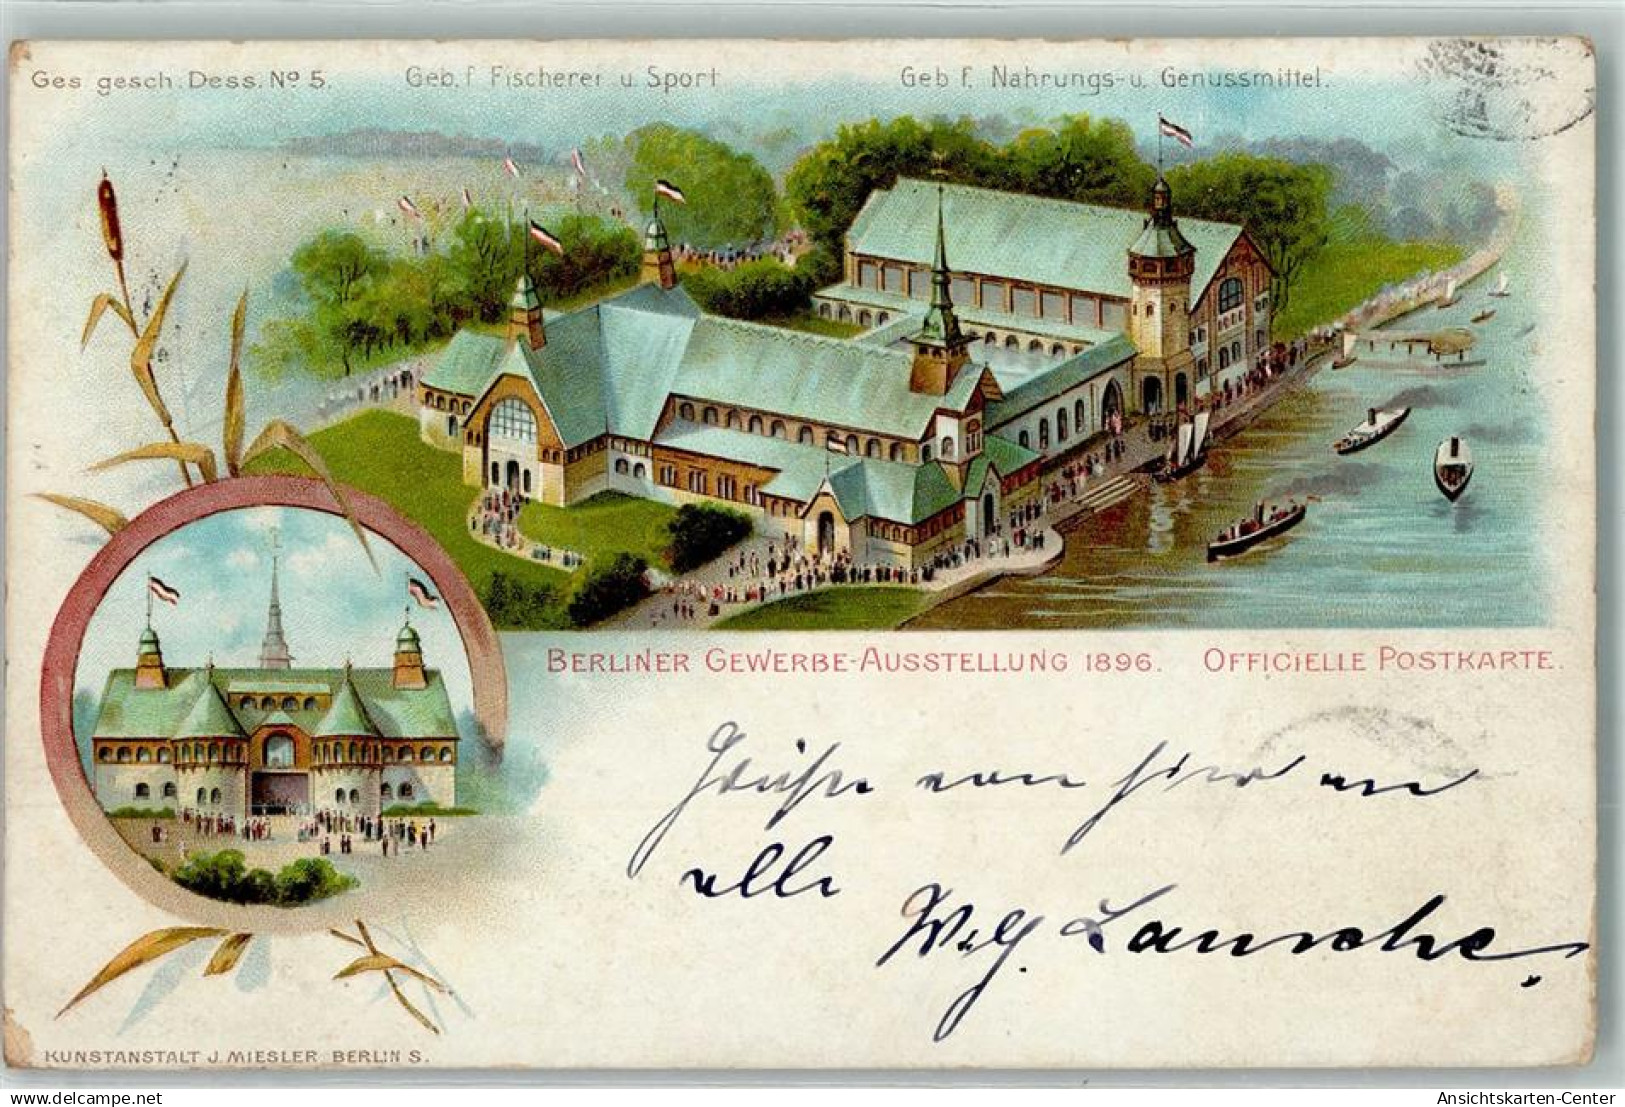 Ges gesch. Dess. No 5.
Geb. f Fischerei u. Sport
Geb f. Nahrungs- u. Genussmittel.
BERLINER GEWERBE-AUSSTELLUNG 1896. OFFICIELLE POSTKARTE.
Grüße von hier an
alle
KUNSTANSTALT J. MIESLER, BERLIN S.
Ansichtskarten-Center